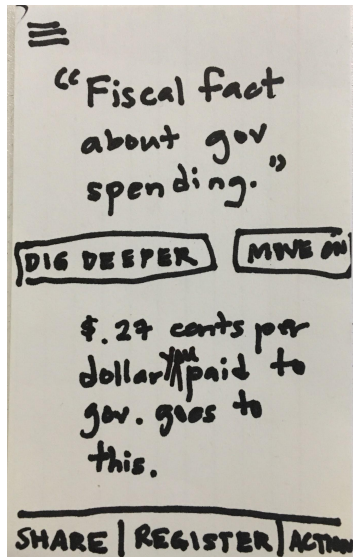 “Fiscal fact
about gov
spending.”
DIG DEEPER MOVE ON
$.27 cents per
dollar you paid to
gov. goes to
this.
SHARE | REGISTER | ACTION